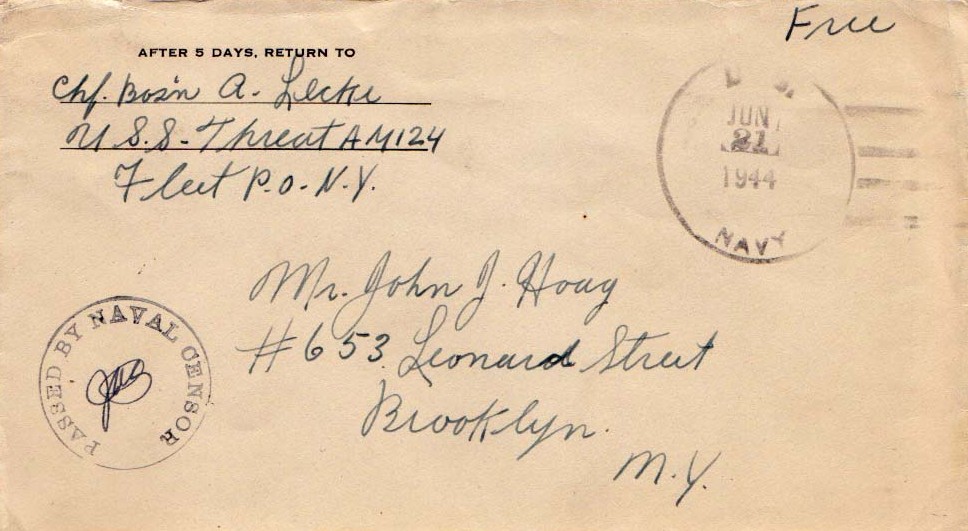 Free
AFTER 5 DAYS, RETURN TO
Chf. Bos'n A. Lecke
U.S.S. Threat AM124
Fleet P.O. N.Y.
U.S.
JUN
21
1944
NAVY
Mr. John J. Hoag
#653 Leonard Street
Brooklyn.
N.Y.
PASSED BY NAVAL CENSOR